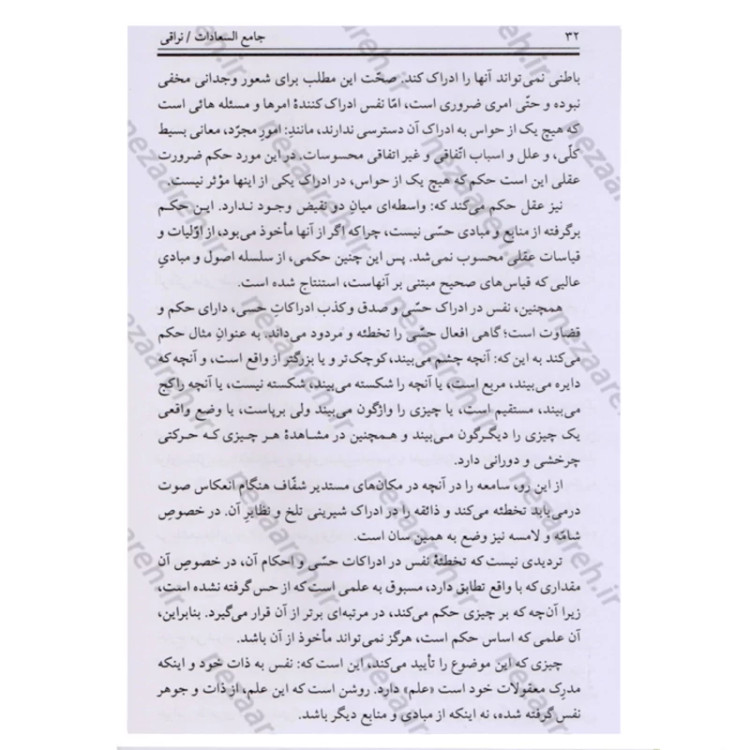 ۳۲ جامع السعادات / نراقی
باطنی نمی‌تواند آنها را ادراک کند. صحّت این مطلب برای شعور وجدانی مخفی
نبوده و حتّی امری ضروری است، امّا نفس ادراک کنندهٔ امرها و مسئله هائی است
که هیچ یک از حواس به ادراک آن دسترسی ندارند، مانندِ: امورِ مجرّد، معانی بسیط
کلّی، و علل و اسباب اتّفاقی و غیر اتفاقی محسوسات. در این مورد حکم ضرورت
عقلی این است حکم که هیچ یک از حواس، در ادراک یکی از اینها مؤثر نیست.
نیز عقل حکم می‌کند که: واسطه‌ای میانِ دو نقیض وجود ندارد. این حکم
برگرفته از منابع و مبادی حسّی نیست، چراکه اگر از آنها مأخوذ می‌بود، از اوّلیات و
قیاسات عقلی محسوب نمی‌شد. پس این چنین حکمی، از سلسله اصول و مبادیِ
عالیی که قیاس‌های صحیح مبتنی بر آنهاست، استنتاج شده است.
همچنین، نفس در ادراک حسّی و صدق و کذب ادراکاتِ حسی، دارای حکم و
قضاوت است؛ گاهی افعال حسّی را تخطئه و مردود می‌داند. به عنوانِ مثال حکم
می‌کند به این که: آنچه چشم می‌بیند، کوچک‌تر و یا بزرگتر از واقع است، و آنچه که
دایره می‌بیند، مربع است، یا آنچه را شکسته می‌بیند، شکسته نیست، یا آنچه راکج
می‌بیند، مستقیم است، یا چیزی را واژگون می‌بیند ولی برپاست، یا وضع واقعی
یک چیزی را دیگرگون می‌بیند و همچنین در مشاهدهٔ هر چیزی که حرکتی
چرخشی و دورانی دارد.
از این رو، سامعه را در آنچه در مکان‌های مستدیر شفّاف هنگام انعکاس صوت
درمی‌یابد تخطئه می‌کند و ذائقه را در ادراک شیرینی تلخ و نظایرِ آن. در خصوصِ
شامّه و لامسه نیز وضع به همین سان است.
تردیدی نیست که تخطئهٔ نفس در ادراکات حسّی و احکام آن، در خصوص آن
مقداری که با واقع تطابق دارد، مسبوق به علمی است که از حس گرفته نشده است،
زیرا آن‌چه که بر چیزی حکم می‌کند، در مرتبه‌ای برتر از آن قرار می‌گیرد. بنابراین،
آن علمی که اساس حکم است، هرگز نمی‌تواند مأخوذ از آن باشد.
چیزی که این موضوع را تأیید می‌کند، این است که: نفس به ذات خود و اینکه
مدرِک معقولات خود است «علم» دارد. روشن است که این علم، از ذات و جوهر
نفس گرفته شده، نه اینکه از مبادی و منابع دیگر باشد.
nezaareh.ir